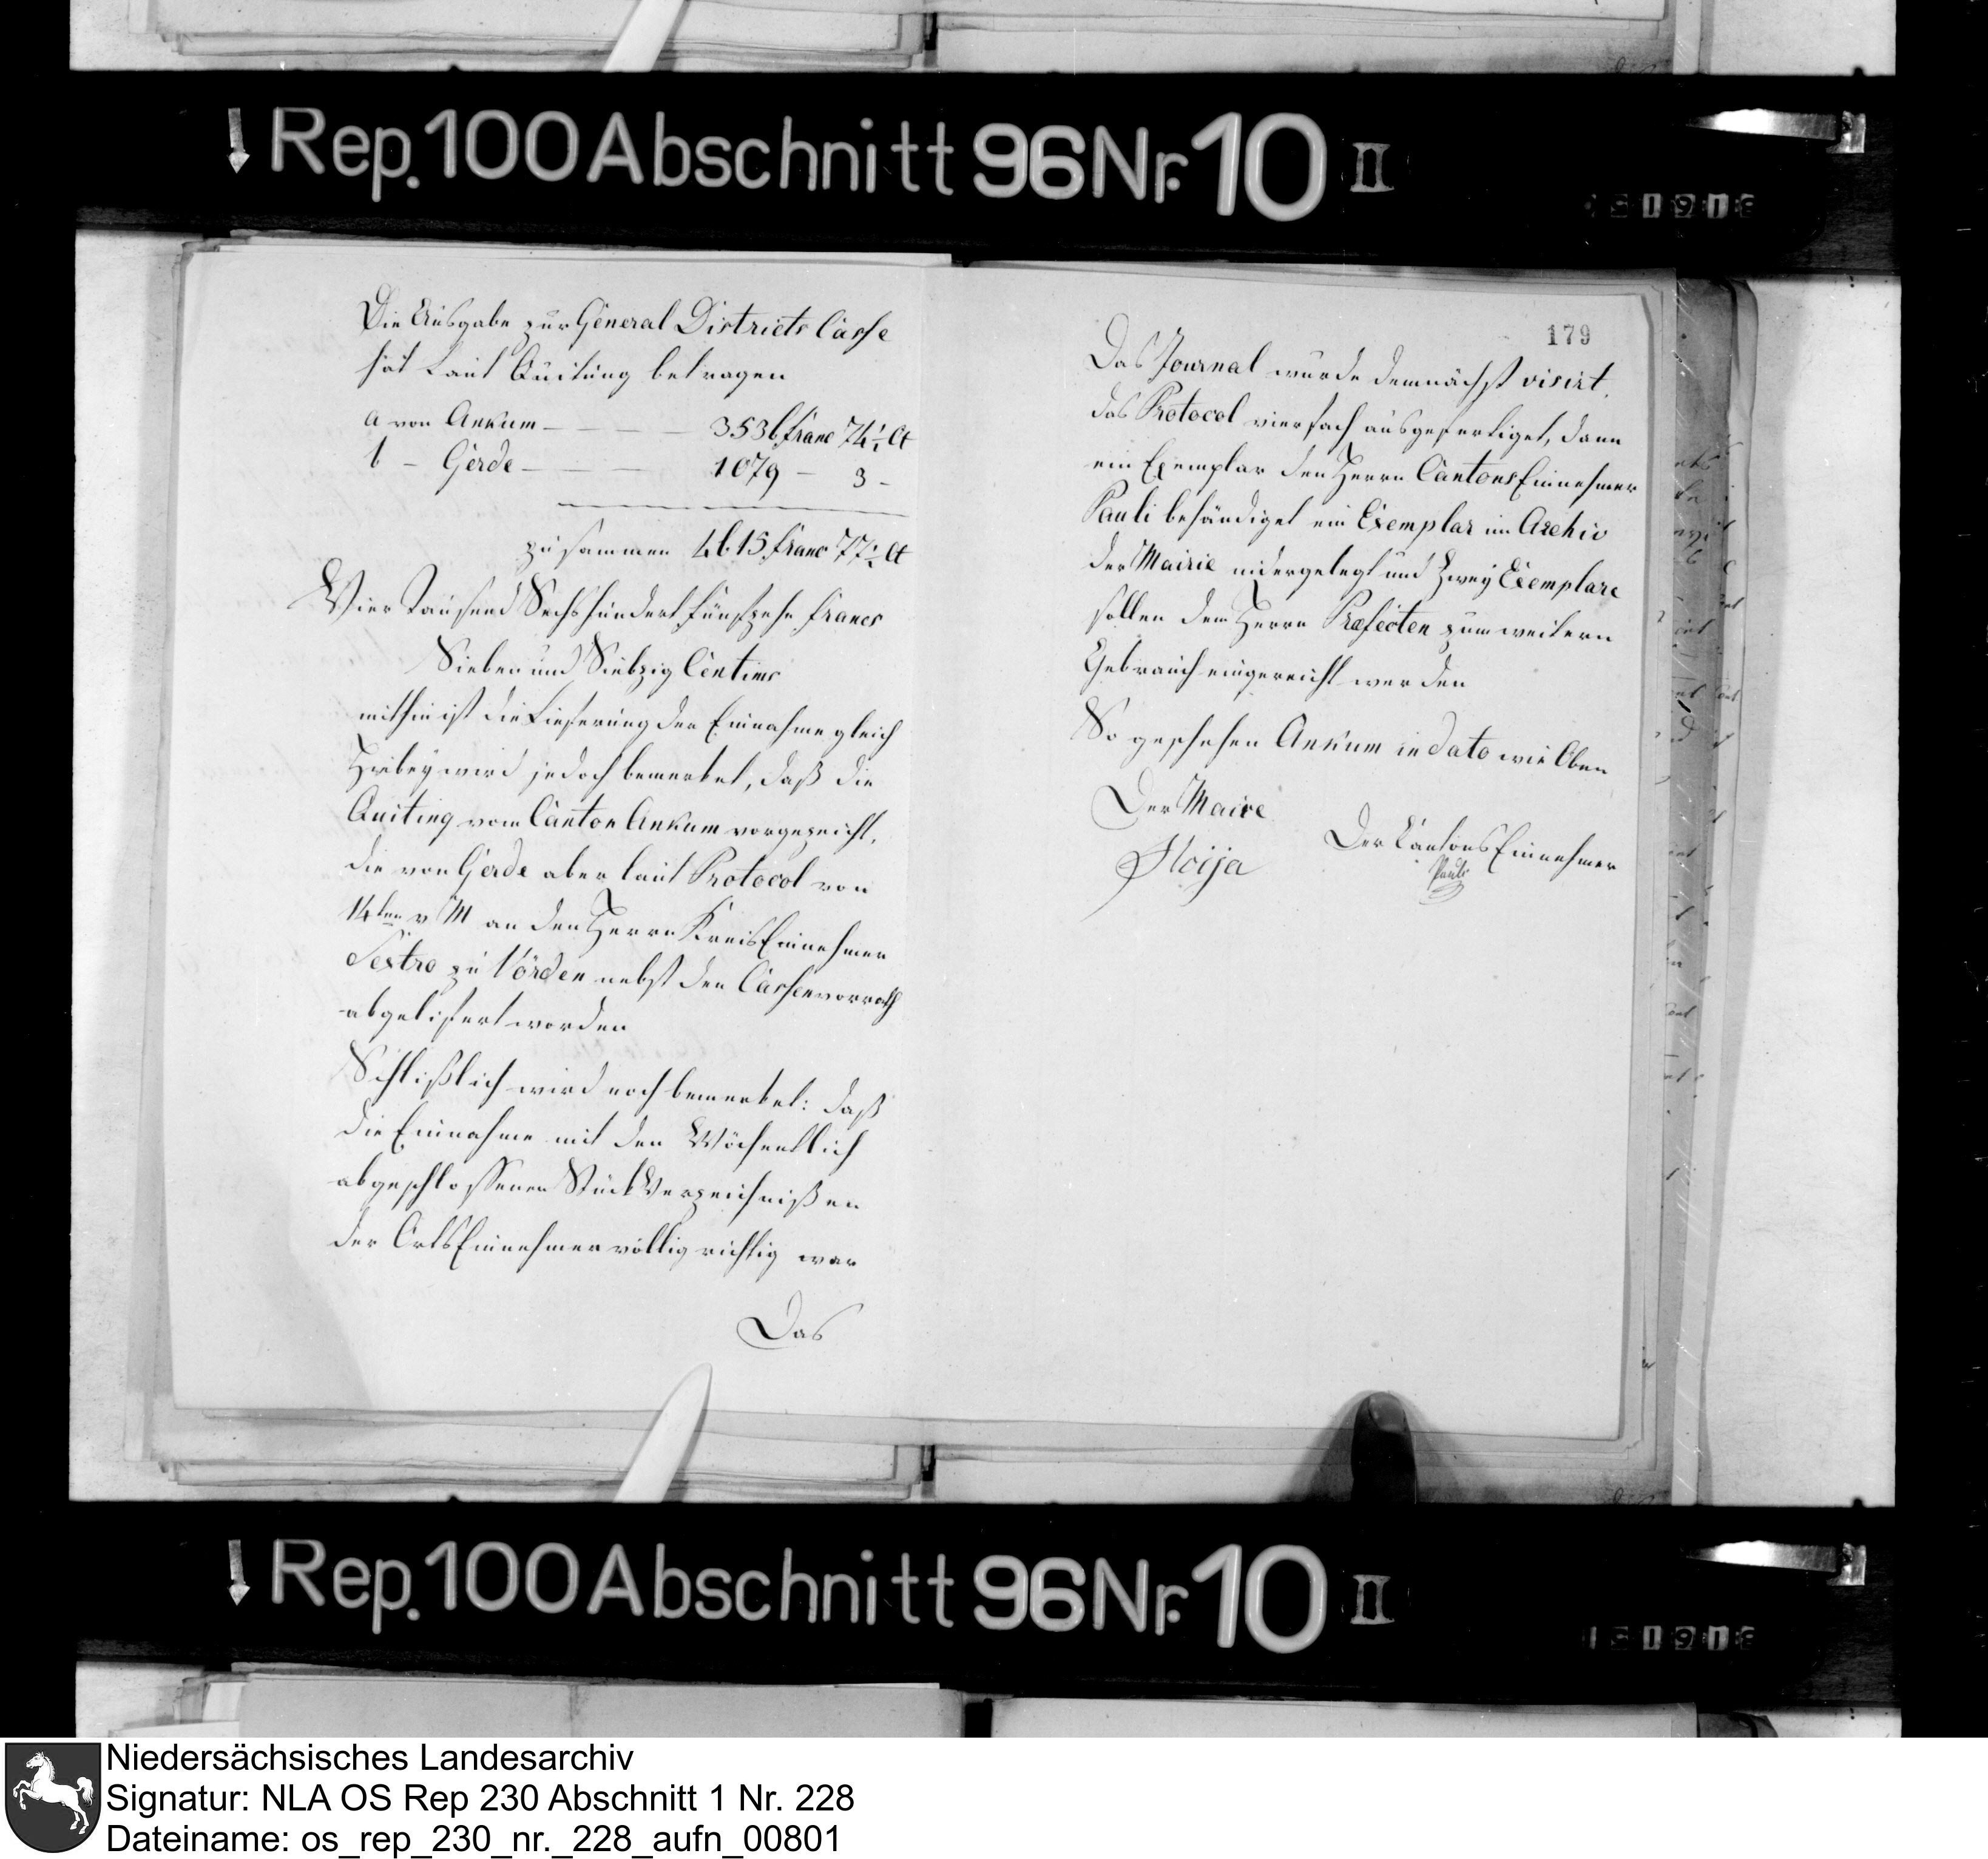 Rep. 100 Abschnitt 96 Nr. 10 II
Die Ausgabe zur General Districts Casse
hat laut Quitung betragen
a von Ankum – – – – 3536 franc 74½ Ct
b – Gerde – – – 1079 – 3 –
zusammen 4615 franc 77½ Ct
Vier Tausend Sechshundert fünfzehn francs
Sieben und Siebzig Centims
mithin ist die Lieferung der Einnahme gleich
Hirbey wird jedoch bemerket, daß die
Quiting vom Canton Ankum vorgezeicht,
die von Gerde aber laut Protocol von
14ten v M an den Herrn KreisEinnehmer
Sextro zu Vörden nebst den Cassenvorrath
abgelifert worden
Schlißlich wird noch bemerket: daß
die Einnahme mit den Wöchentlich
abgeschlossenen StückVerzeichnißen
der OrtsEinnehmer völlig richtig war
Das
179
Das Journal wurde demnächst visirt,
das Protocol vierfach ausgefertiget, dann
ein Exemplar den Herrn CantonsEinnehmer
Pauli behändiget ein Exemplar im Archiv
der Mairie nidergelegt und Zwey Exemplare
sollen dem Herrn Præfecten zum weitern
Gebrauch eingereicht werden
So geschehen Ankum in dato wie Oben
Der Maire
Der CantonsEinnehmer
Pauli
Rep. 100 Abschnitt 96 Nr. 10 II
Niedersächsisches Landesarchiv
Signatur: NLA OS Rep 230 Abschnitt 1 Nr. 228
Dateiname: os_rep_230_nr._228_aufn_00801